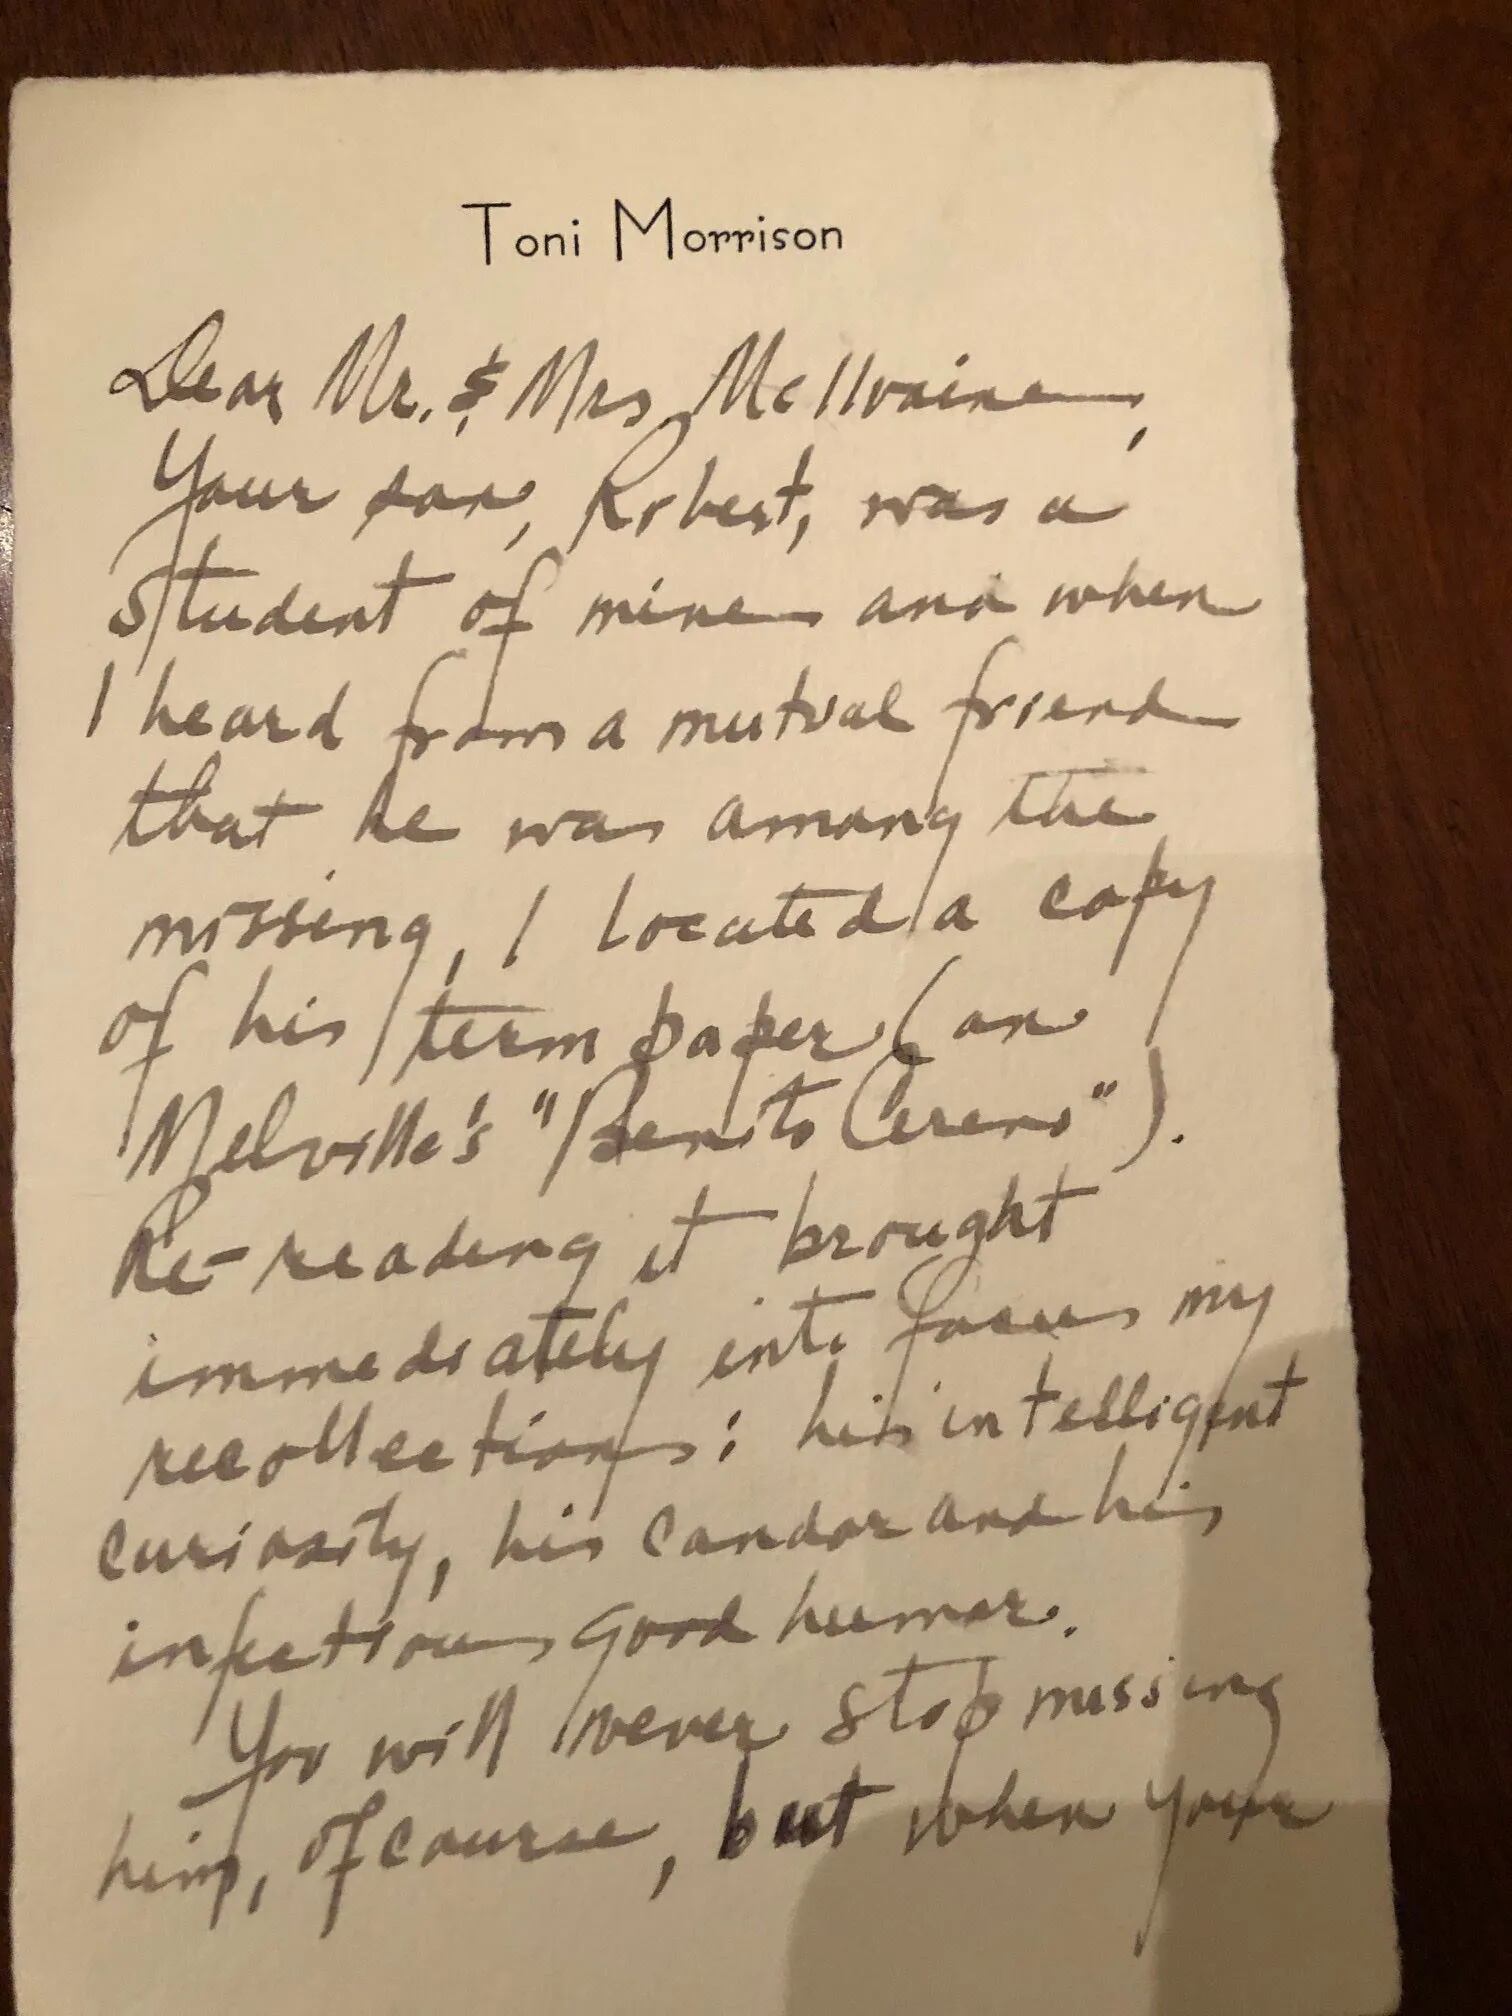 Toni Morrison
Dear Mr. & Mrs McIlvaine,
Your son, Robert, was a
student of mine and when
I heard from a mutual friend
that he was among the
missing, I located a copy
of his term paper (on
Melville's "Benito Cereno").
Re-reading it brought
immediately into focus my
recollections: his intelligent
curiosity, his candor and his
infectious good humor.
You will never stop missing
him, of course, but when your